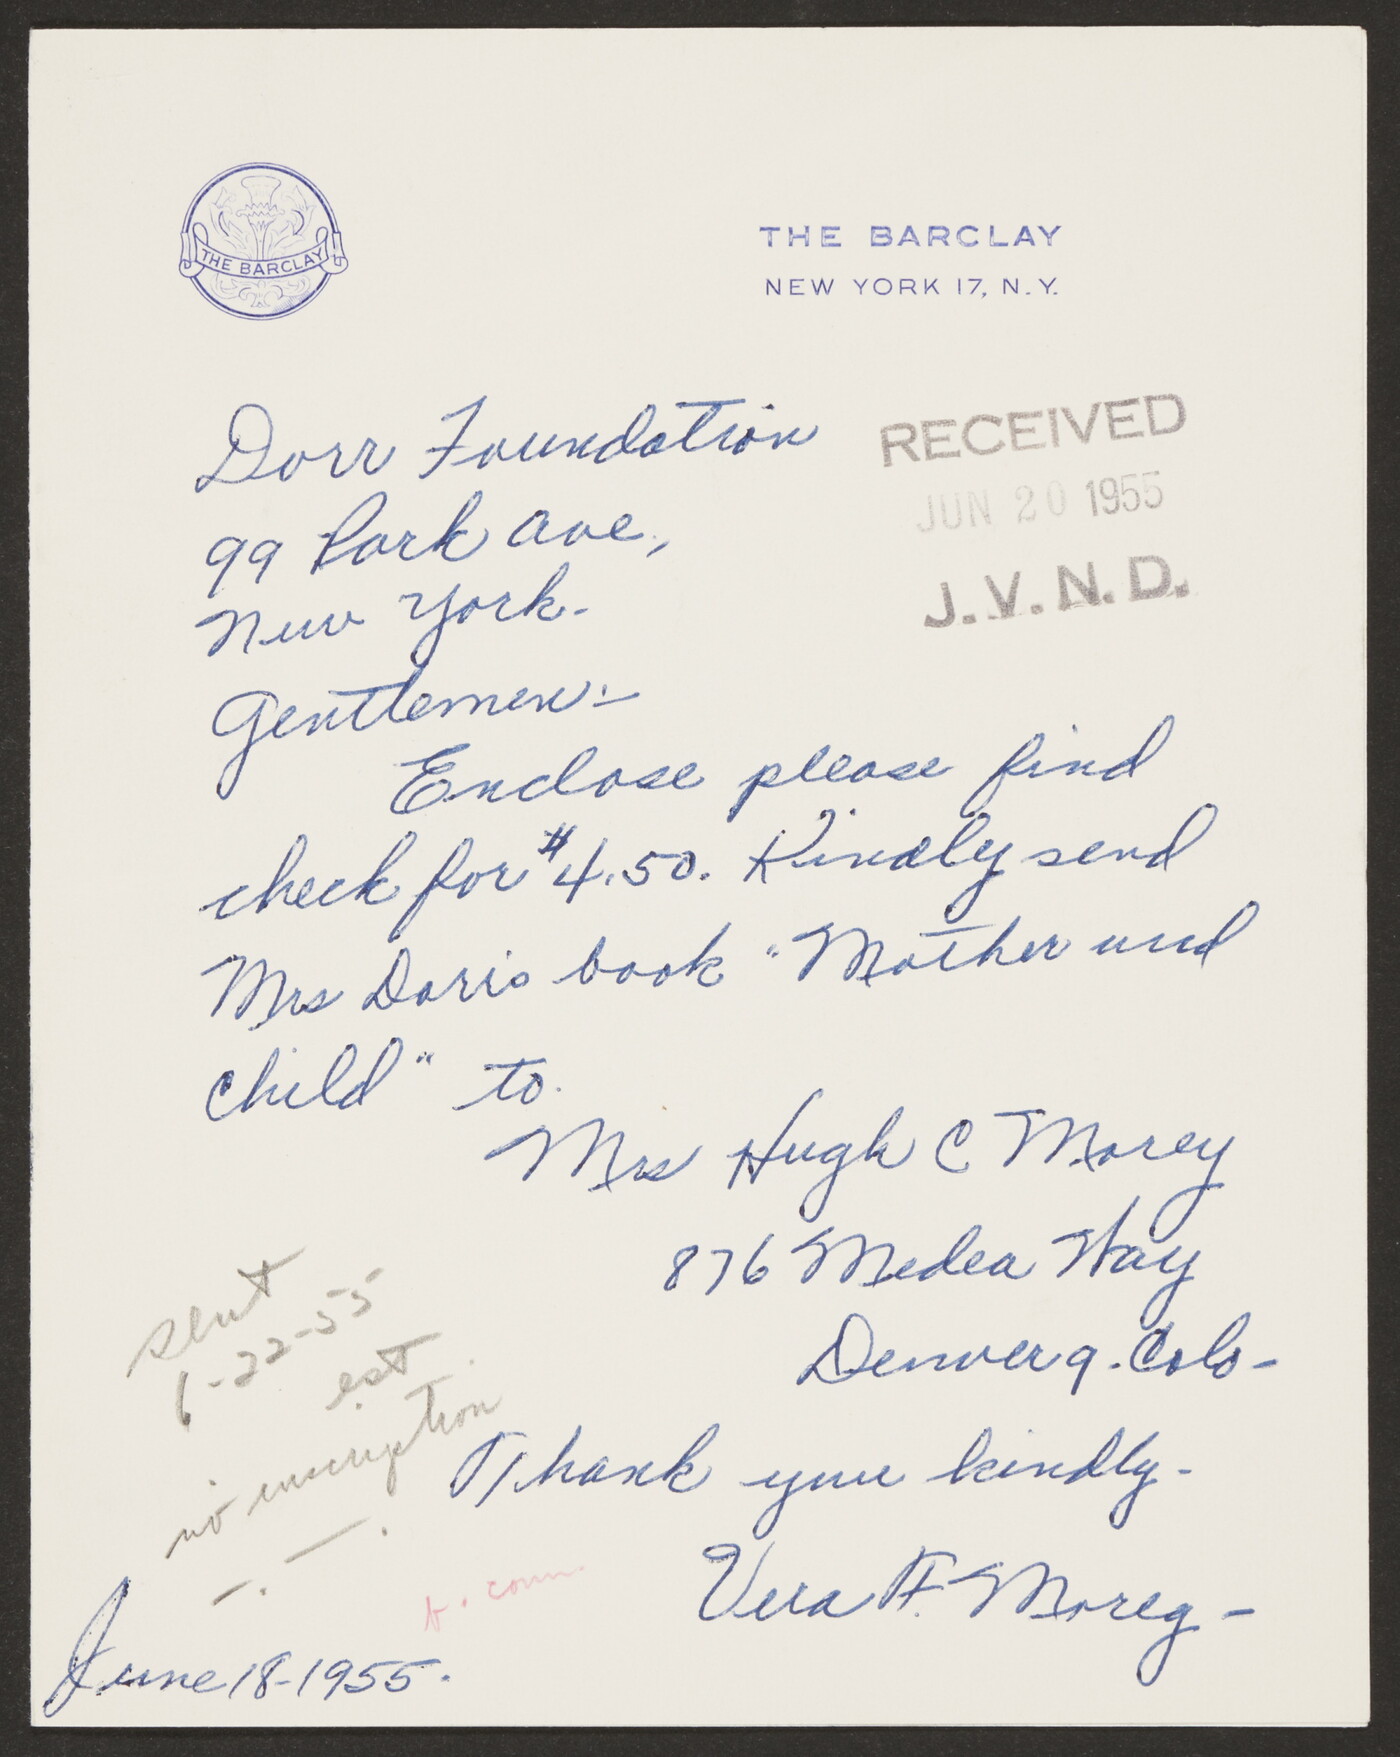 THE BARCLAY
THE BARCLAY
NEW YORK 17, N.Y.
RECEIVED
JUN 20 1955
J.V.N.D.
Dorr Foundation
99 Park Ave,
New York-
Gentlemen:-
Enclose please find
check for $4.50. Kindly send
Mrs Dorris book "Mother and
Child" to.
Mrs Hugh C Morey
876 Medea Way
Denver 9. Colo-
Thank you kindly-
Vera F. Morey-
June 18-1955.
sent
6-22-55
est
no inscription